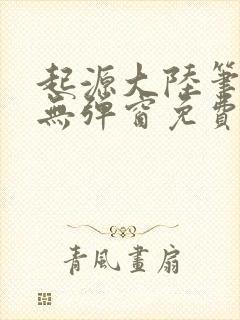 起源大陸筆
無彈窗免費
青風畫扇